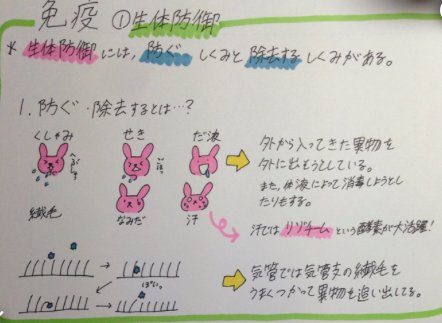 免疫 ①生体防御
* 生体防御には、防ぐしくみと除去するしくみがある。
1. 防ぐ・除去するとは…?
くしゃみ せき だ液
へぶしっ
外から入ってきた異物を
外に出そうとしている。
また、体液によって消毒しようとし
たりもする。
なみだ 汗
汗ではリゾチームという酵素が大活躍!
繊毛
ぽいっ
気管では気管支の繊毛を
うまくつかって異物を追い出してる。